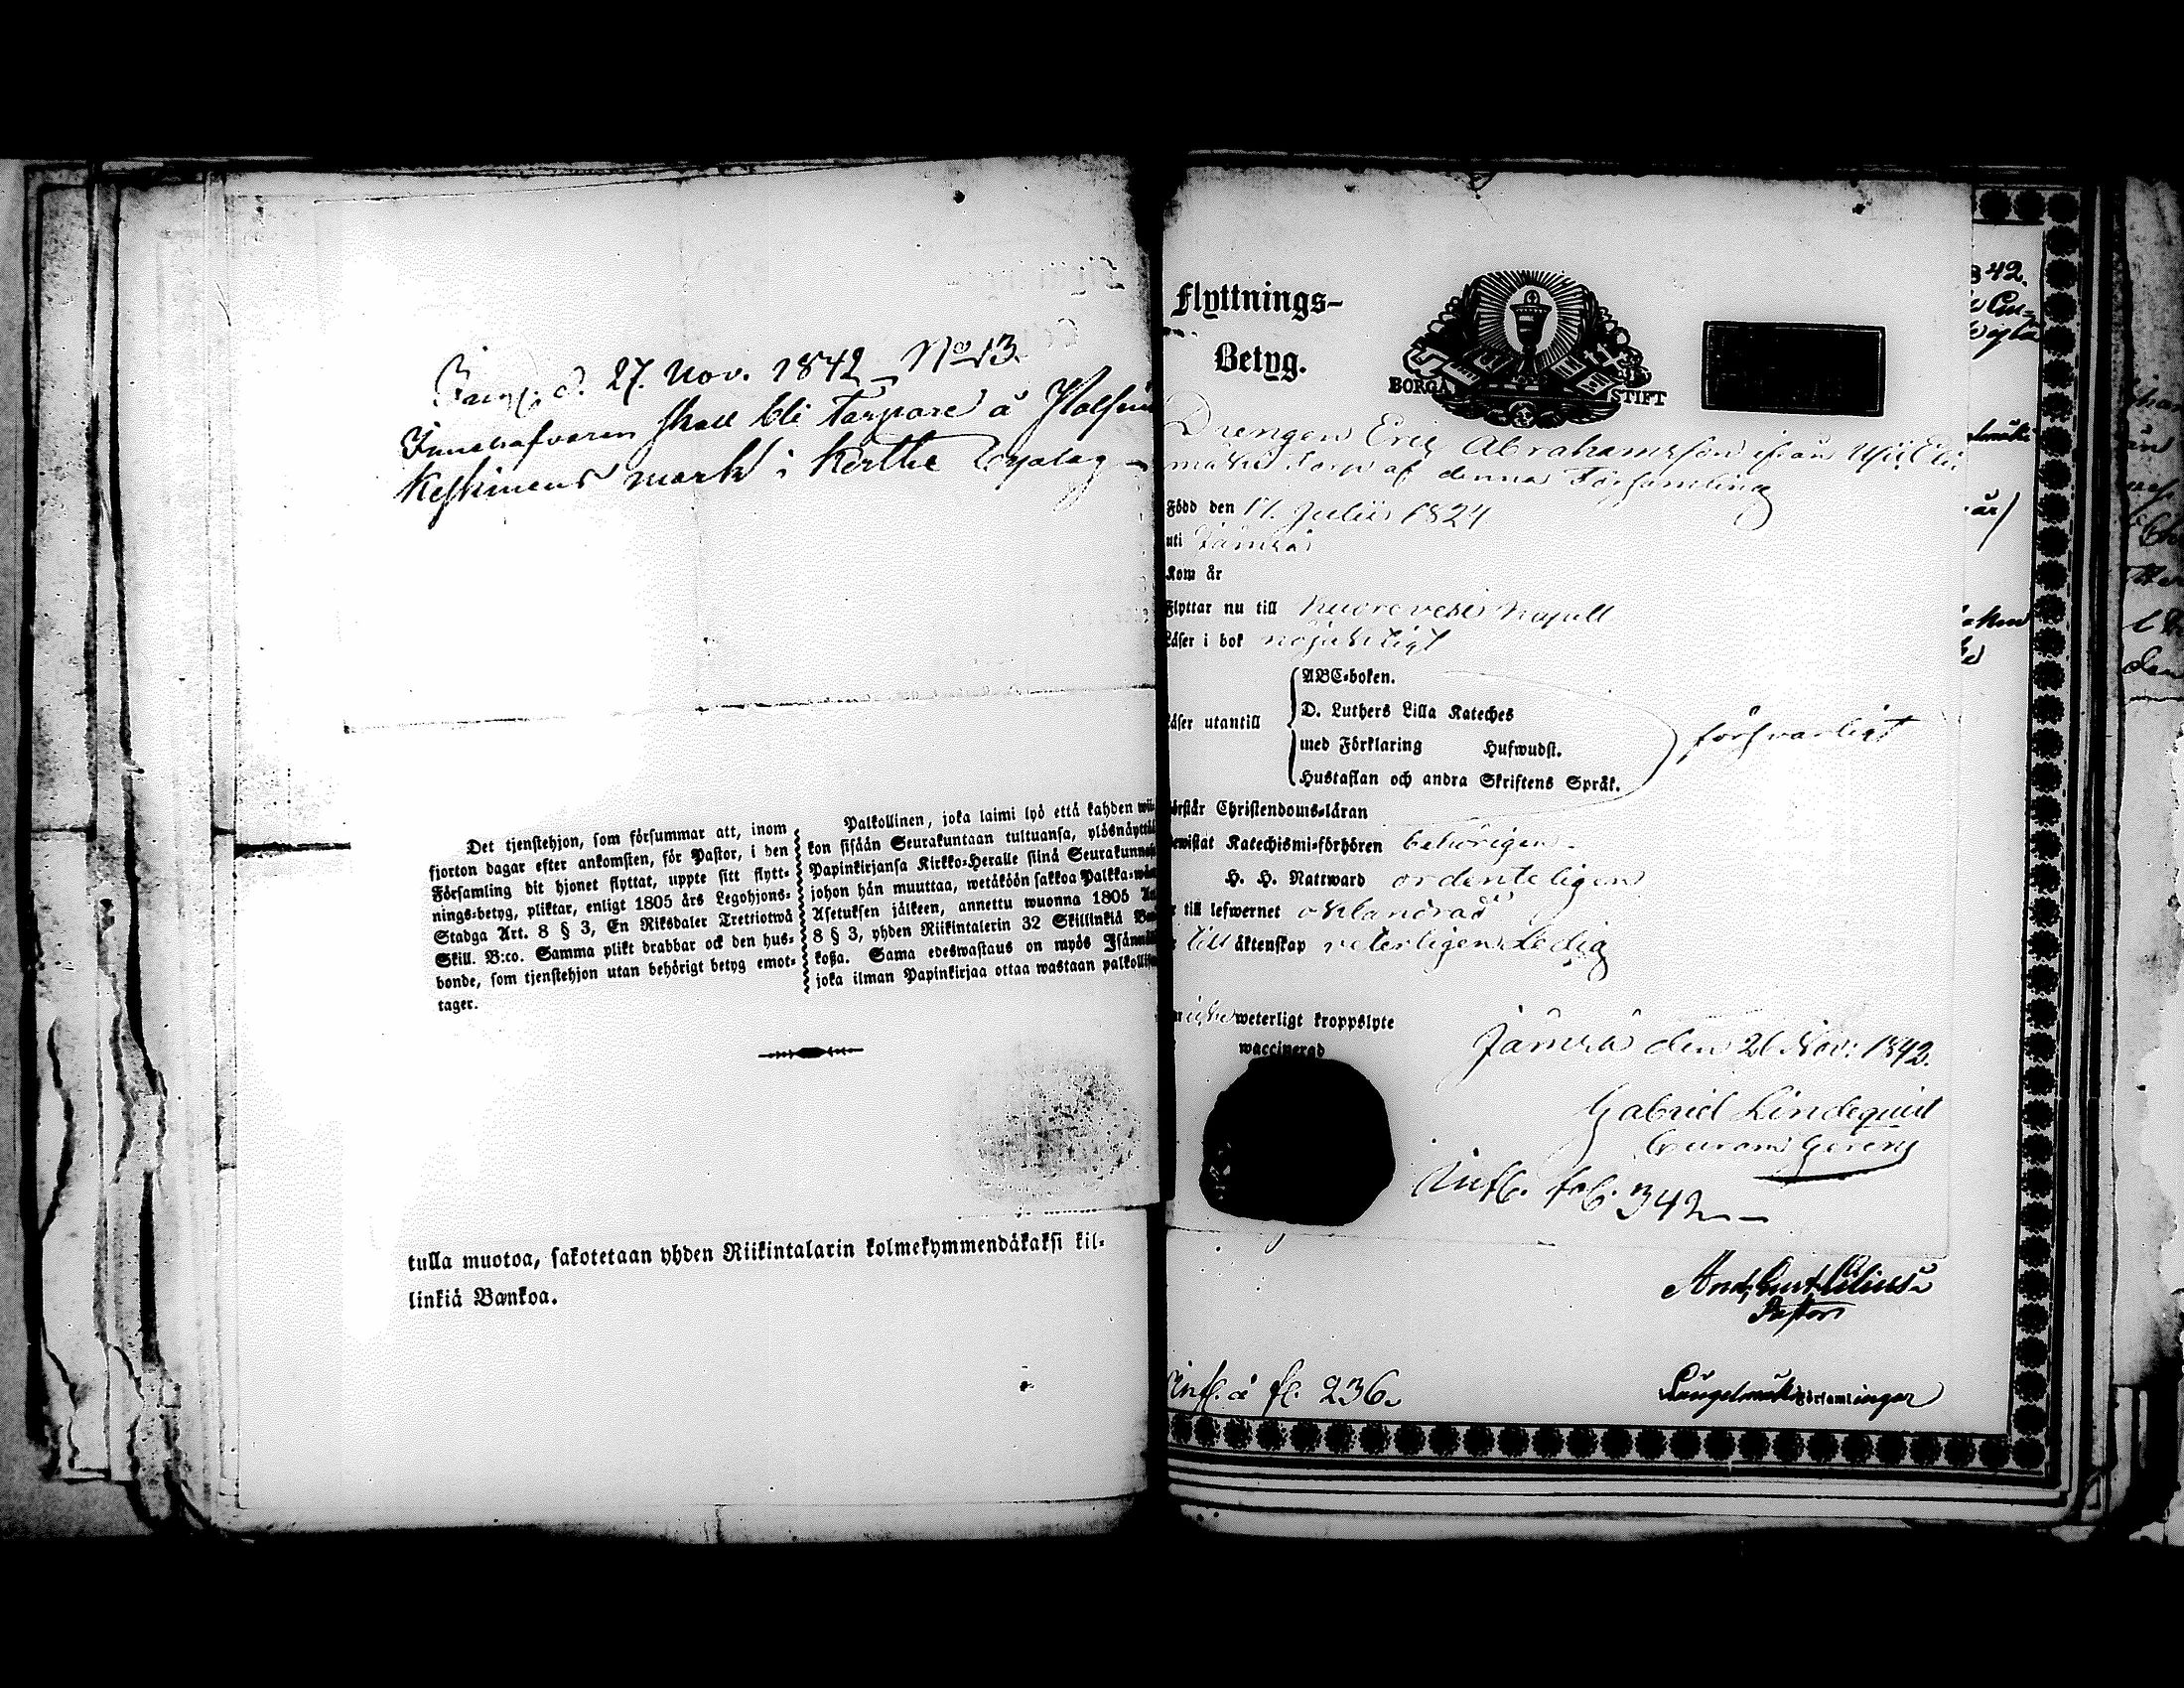 d. 27. Nov. 1842 _ No 13.
Innehafvaren skall bli Torpare å
Keskinens mark i Kerthe Byalag
Det tjenstehjon, som försummar att, inom
fjorton dagar efter ankomsten, för Pastor, i den
Församling dit hjonet flyttat, uppte sitt flytt-
nings-betyg, pliktar, enligt 1805 års Legohjons-
Stadga Art. 8 § 3, En Riksdaler Trettiotwå
Skill. B:co. Samma plikt drabbar ock den hus-
bonde, som tjenstehjon utan behörigt betyg emot-
tager.
Palkollinen, joka laimi lyö että kahden wii-
kon sisään Seurakuntaan tultuansa, ylösnäyttää
Papinkirjansa Kirkko-Heralle siinä Seurakunnas
johon hän muuttaa, wetäköön sakkoa Palkka-wä
Asetuksen jälkeen, annettu wuonna 1805 Ar
8 § 3, yhden Riikintalerin 32 Skillinkiä Ba
koßa. Sama edeswastaus on myös Isännällä
joka ilman Papinkirjaa ottaa wastaan palkollise
tulla muotoa, sakotetaan yhden Riikintalarin kolmekymmendäkaksi kil-
linkiä Bankoa.
Flyttnings-
Betyg.
BORGÅ STIFT
Drengen Eric Abrahamsson ifrån
mäki torp af denna Församling
Född den 17. Julii 1824
uti Jämsä
Kom år
Flyttar nu till Kuorevesi Kapell
Läser i bok nöjaktigt
Läser utantill
ABC-boken.
D. Luthers Lilla Kateches
med Förklaring Hufwudst.
Hustaflan och andra Skriftens Språk.
försvarligt
örstår Christendoms-läran
ewistat Katechismi-förhören behörigen
H. H. Nattward ordenteligen
r till lefwernet oklandrad
till äktenskap veterligen Ledig
icke weterligt kroppslyte
waccinerad
Jämsä den 26 Nov: 1842.
Gabriel Lindequist
Curam Gerens
Infl. fol. 342
Pastor
Infl. å fl. 236.
Längelmäki Församlingar
42.